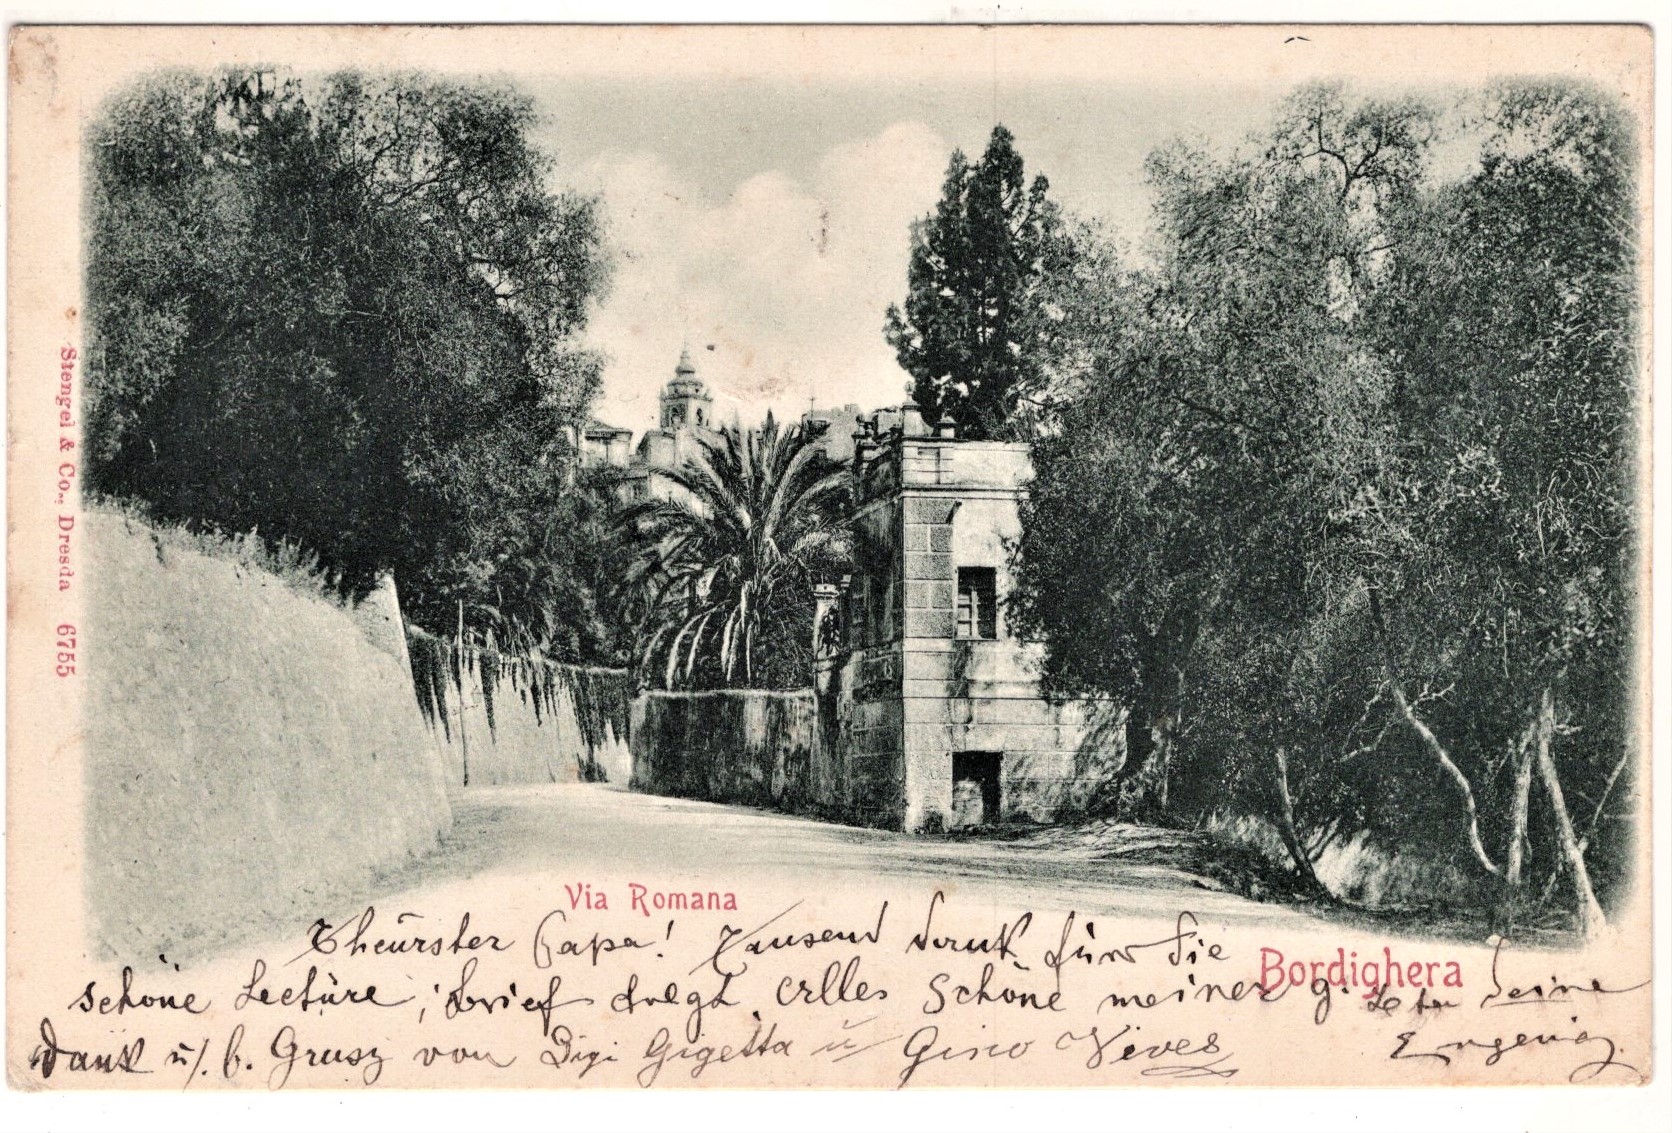 Stengel & Co., Dresda 6755
Via Romana
Bordighera
Theürster Papa! Tausend Dank für die
schöne Lectüre, Brief folgt Alles Schöne meiner g.
Dank u/. b. Grusz von Gigi Gigetta ü Gino Vives
Deine
Eugenia